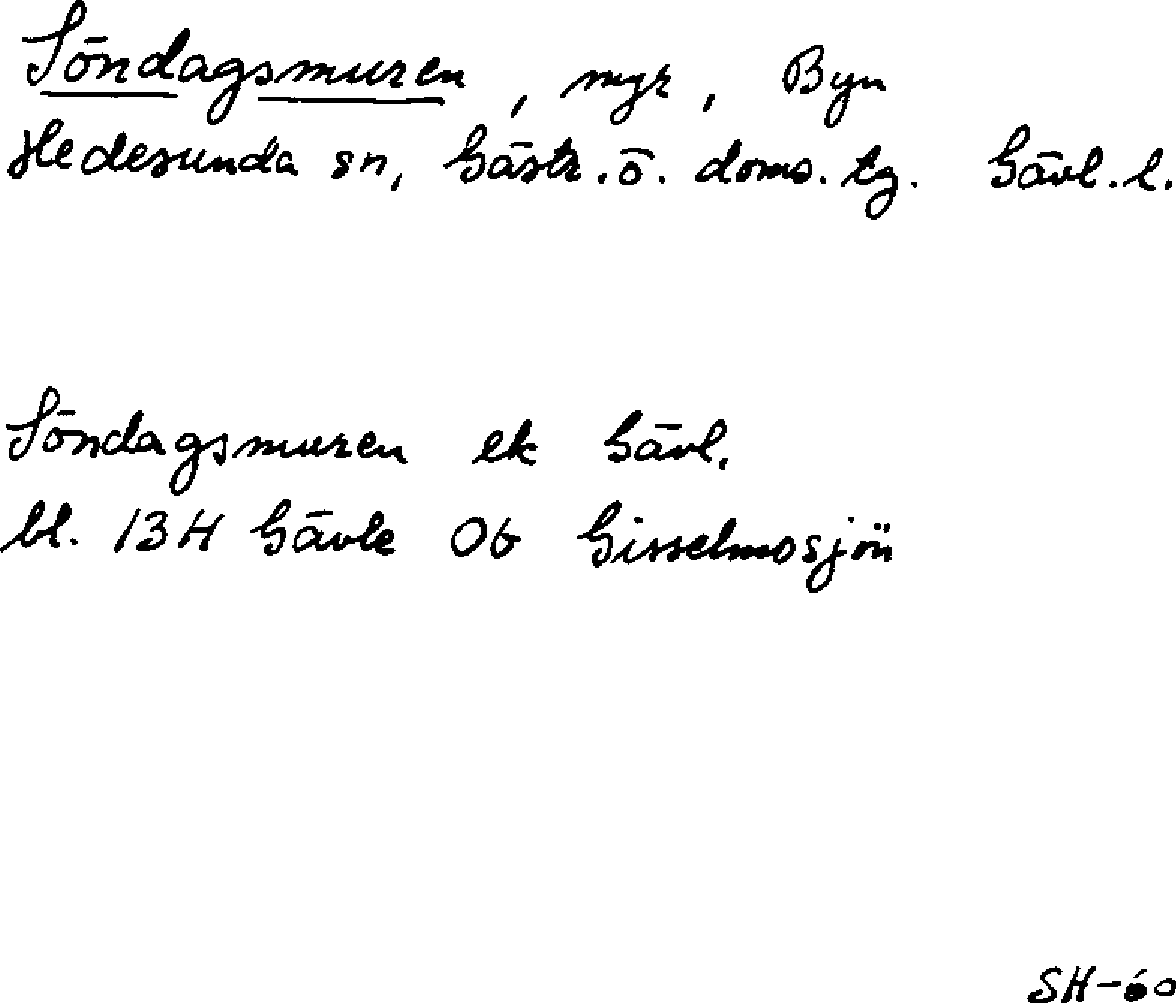 Söndagsmuren, myr, Byn
Hedesunda sn, Gästr. ö. doms. tg. Gävl. l.
Söndagsmuren ek Gävl.
bl. 13H Gävle 0b Gisselmosjön
SH-60